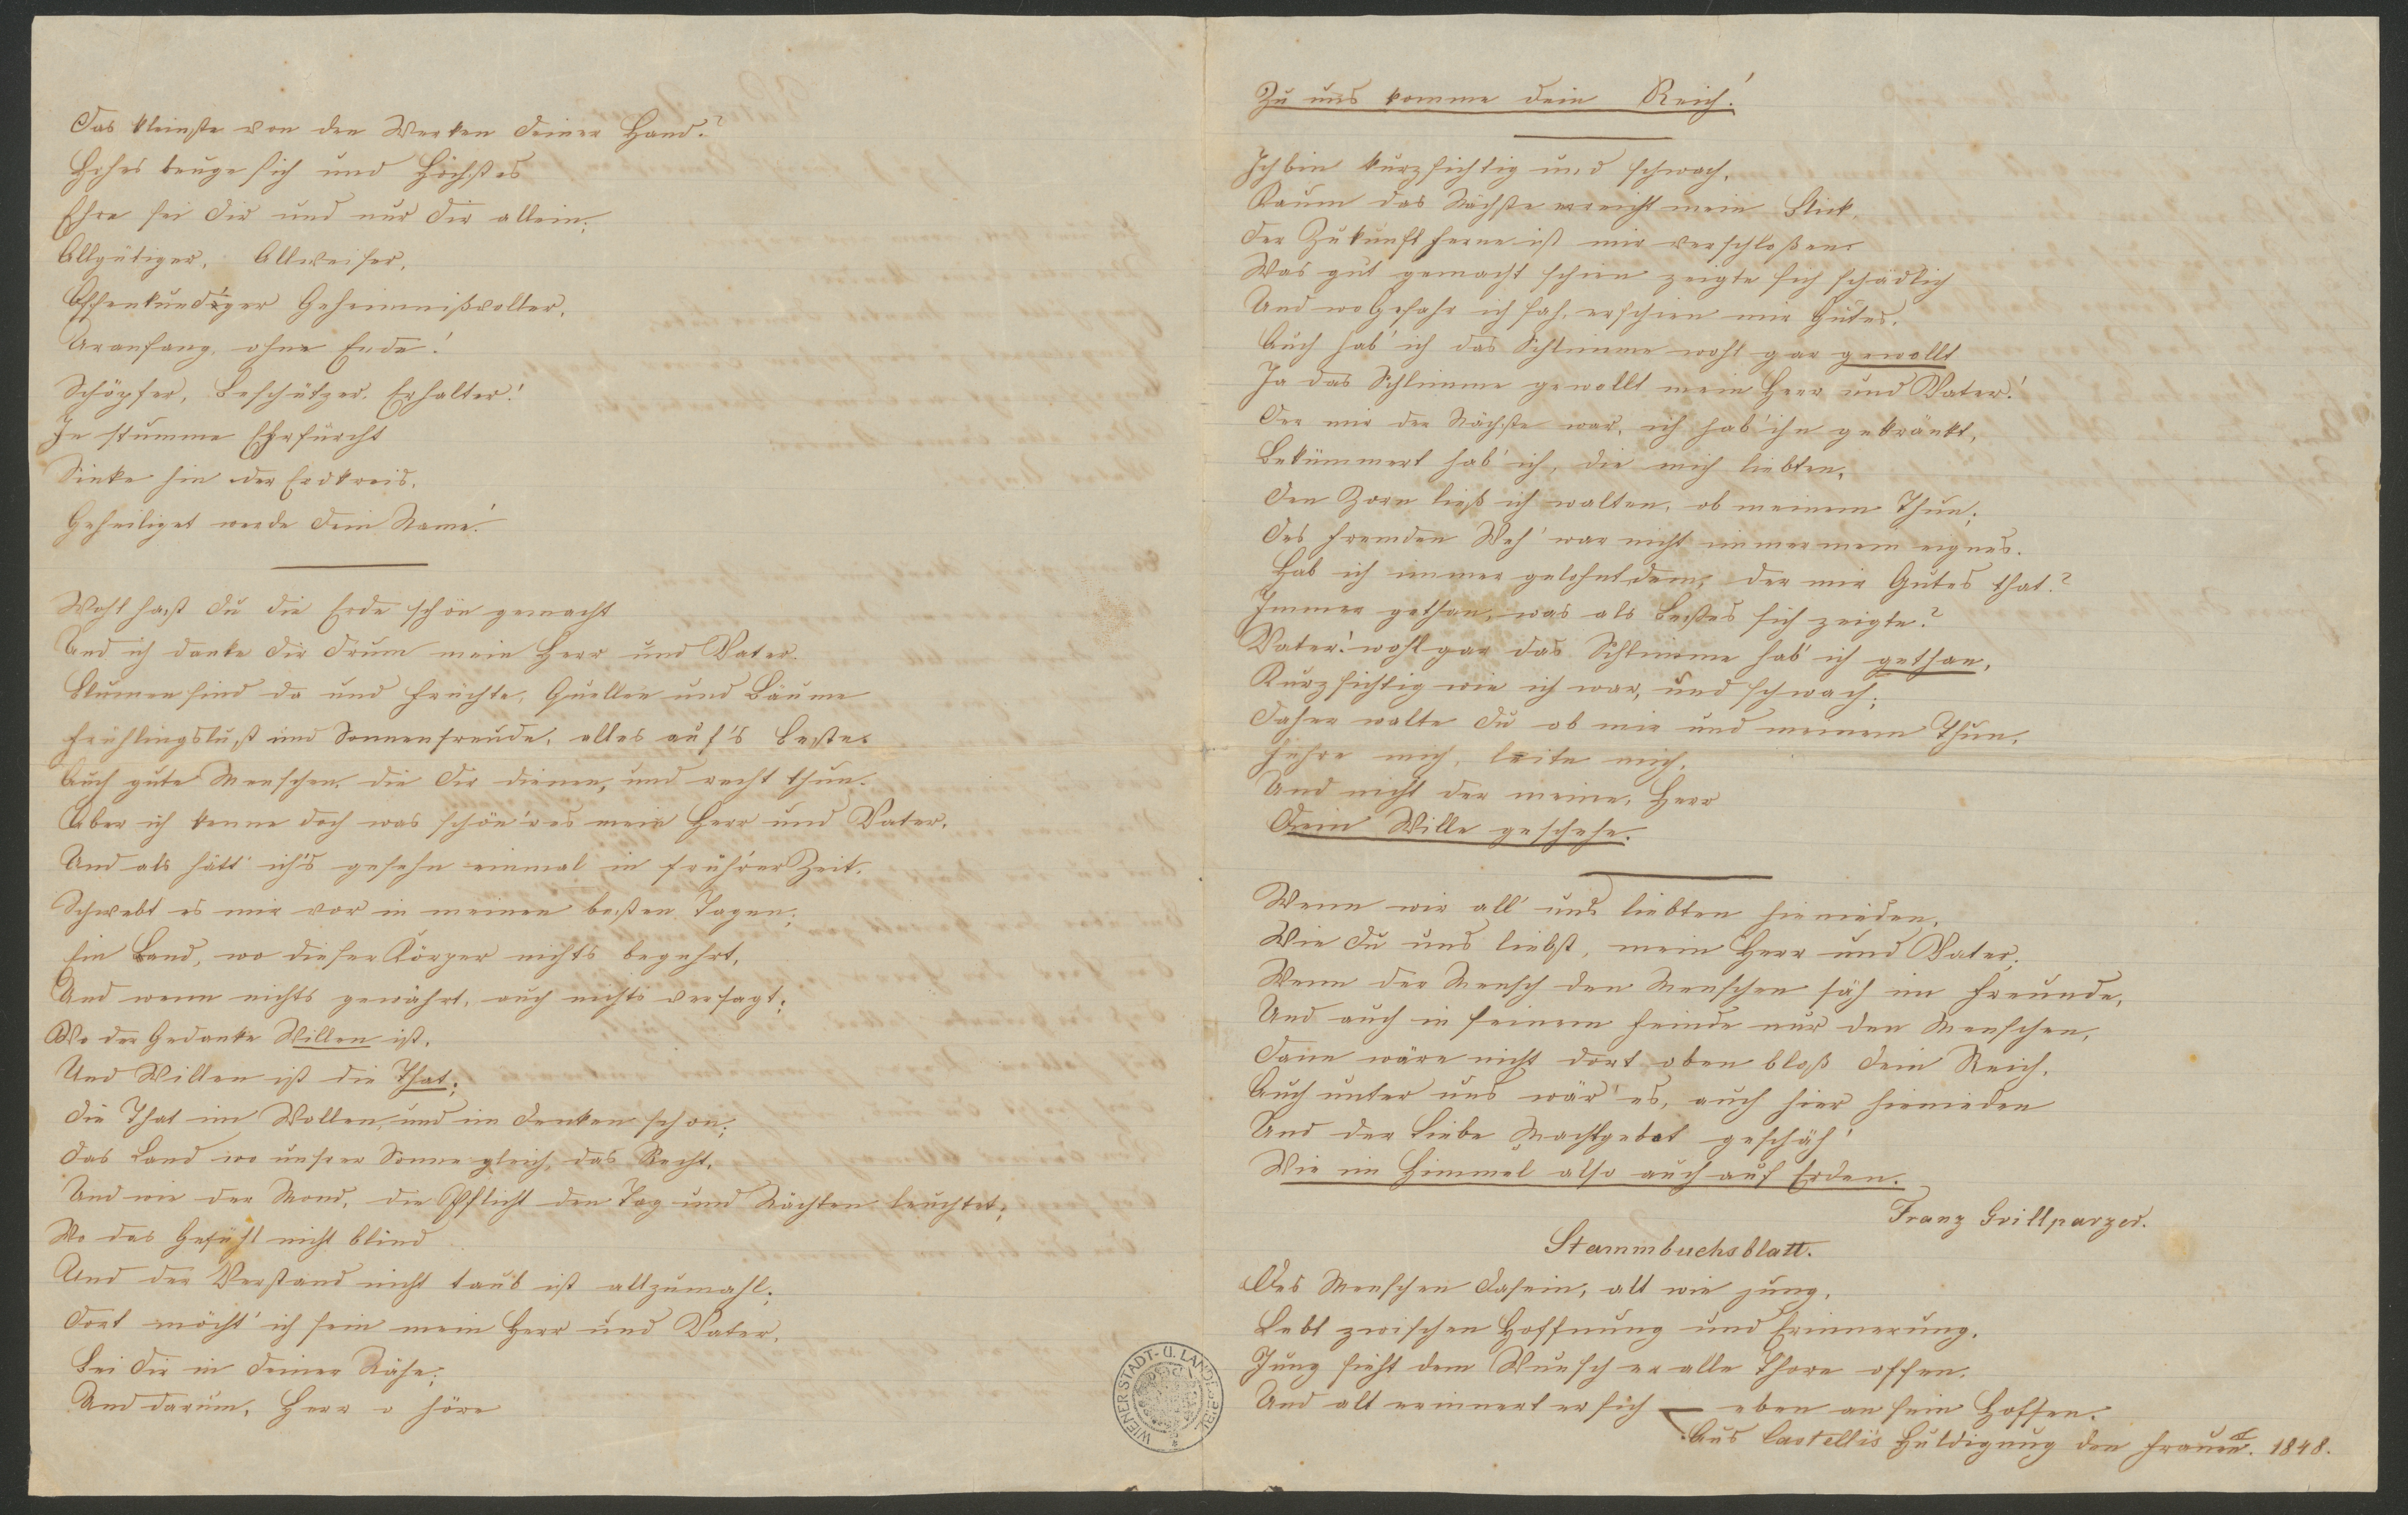 Das kleinste von den Werken deiner Hand?
Hohes beuge sich und Höchstes
Ehre sei dir und nur dir allein;
Allgütiger, Allweiser,
Offenkundiger Geheimnißvoller,
Uranfang, ohne Ende!
Schöpfer, Beschützer, Erhalter!
In stumme Ehrfurcht
Sinke hin der Erdkreis.
Geheiliget werde dein Name!
Wohl hast du die Erde schön gemacht
Und ich danke dir drum mein Herr und Vater.
Blumen sind da und Früchte, Quellen und Bäume
Frühlingslust und Sonnenfreude, alles auf's Beste.
Auch gute Menschen, die dir dienen, und recht thun.
Aber ich kenne doch was schön'res mein Herr und Vater,
Und als hätt' ich's gesehn einmal in früh'rer Zeit,
Schwebt es mir vor in meinen besten Tagen;
Ein Land, wo dieser Körper nichts begehrt,
Und wenn nichts gewährt, auch nichts versagt;
Wo der Gedanke Willen ist,
Und Willen ist die That;
Die That im Wollen, und im Denken schon;
Das Land wo unsrer Sonne gleich, das Recht,
Und wie der Mond, die Pflicht den Tag und Nächten leuchtet;
Wo das Gefühl nicht blind
Und der Verstand nicht taub ist allzumahl;
Dort möcht' ich sein mein Herr und Vater,
Bei dir in deiner Nähe;
Und darum, Herr o höre
Zu uns komme dein Reich!
Ich bin kurzsichtig und schwach,
Kaum das Nächste erreicht mein Blick,
Der Zukunft Ferne ist mir verschloßen.
Was gut gemacht schien zeigte sich schädlich
Und wo Gefahr ich sah, erschien mir Gutes.
Auch hab' ich das Schlimme wohl gar gewollt
Ja das Schlimme gewollt mein Herr und Vater!
Der mir der Nächste war, ich hab' ihn gekränkt,
Bekümmert hab' ich, die mich liebten,
Den Zorn ließ ich walten, ob meinem Thun;
Des Fremden Weh' war nicht immer mein eignes.
Hab ich immer gelohnt dem, der mir Gutes that?
Immer gethan, was als Bestes sich zeigte?
Vater! wohl gar das Schlimme hab' ich gethan,
Kurzsichtig wie ich war, und schwach;
Daher walte du ob mir und meinem Thun,
Führe mich, leite mich,
Und nicht der meine, Herr
Dein Wille geschehe.
Wenn wir all' uns liebten hienieden,
Wie du uns liebst, mein Herr und Vater;
Wenn der Mensch den Menschen säh im Freunde,
Und auch in seinem Feinde nur den Menschen,
Dann wäre nicht dort oben bloß dein Reich,
Auch unter uns wär' es, auch hier hienieden
Und der Liebe Machtgebot geschäh'
Wie im Himmel also auch auf Erden.
Franz Grillparzer.
Stammbuchsblatt.
Des Menschen Dasein, alt wie jung,
Lebt zwischen Hoffnung und Erinnerung.
Jung sieht dem Wunsch er alle Thore offen.
Und alt erinnert er sich — eben an sein Hoffen.
Aus Castelli's Huldigung den Frauen. 1848.
WIENER STADT- U. LANDESBIBL.